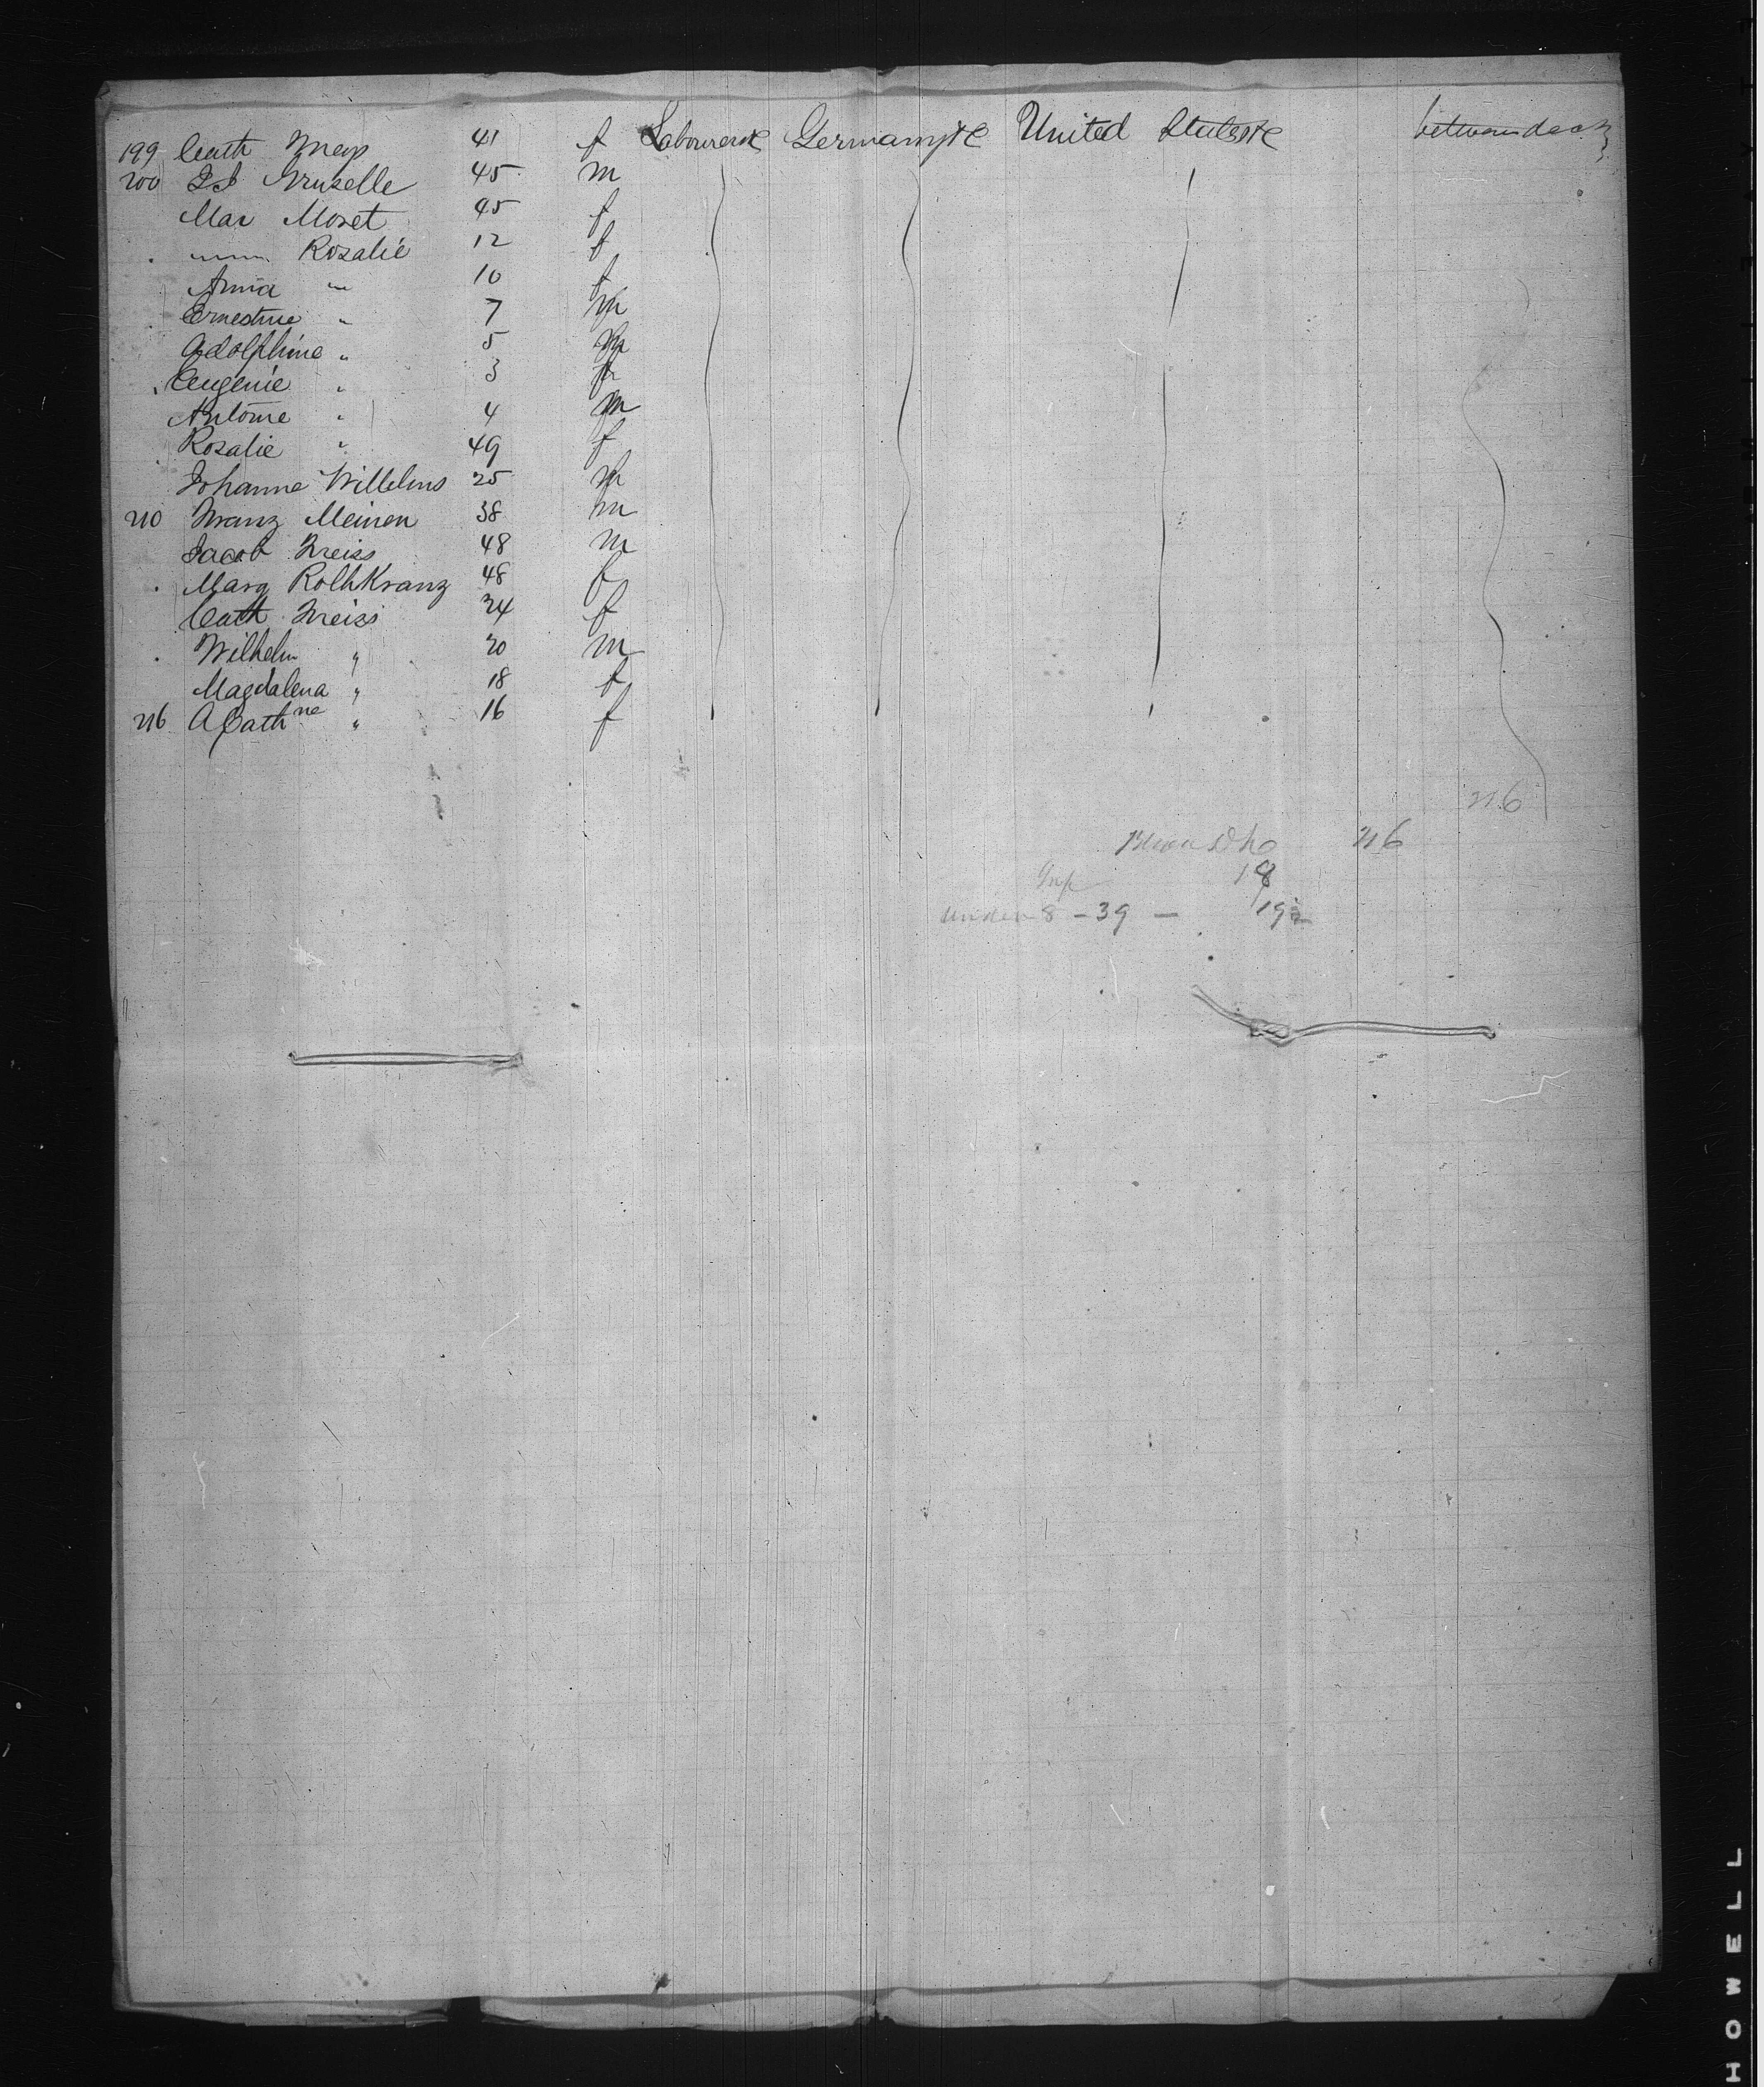 199 Cath Meys 41 f Labourers &c Germany &c United States &c between deck
200 J J Gruselle 45 m
Mar Moset 45 f
" Rosalie 12 f
Anna " 10 f
Ernestine " 7 m
Adolphine " 5 m
Eugenie " 3 f
Antoine " 4 m
Rosalie " 49 f
Johanne Willelms 25 m
210 Franz Meinen 38 m
Jacob Freiss 48 m
Marg Rothkranz 48 f
Cath Freiss 24 f
Wilhelm " 20 m
Magdalena " 18 f
216 A Cathne " 16 f
216
216
Inf 18
under 8 - 39 - 19
HOWELL